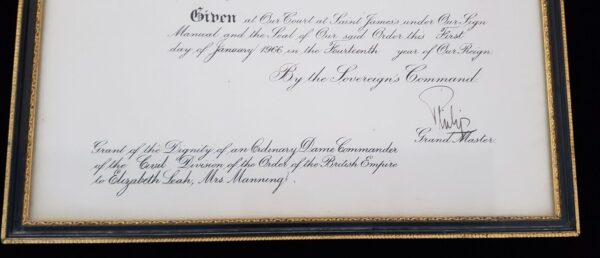 Given at Our Court at Saint James's under Our Sign
Manual and the Seal of Our said Order this First
day of January 1966 in the Fourteenth year of Our Reign.
By the Sovereign's Command.
Philip
Grand Master.
Grant of the Dignity of an Ordinary Dame Commander
of the Civil Division of the Order of the British Empire
to Elizabeth Leah, Mrs. Manning.